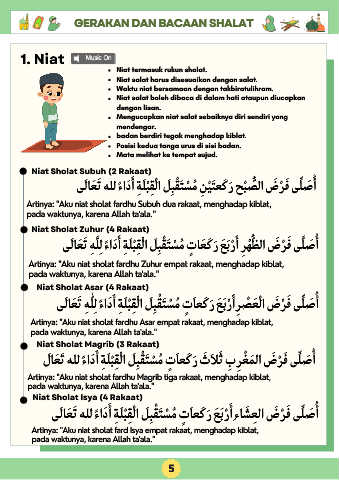 GERAKAN DAN BACAAN SHALAT
1. Niat
Music On
• Niat termasuk rukun shalat.
• Niat salat harus disesuaikan dengan salat.
• Waktu niat bersamaan dengan takbiratulihram.
• Niat salat boleh dibaca di dalam hati ataupun diucapkan
dengan lisan.
• Mengucapkan niat salat sebaiknya diri sendiri yang
mendengar.
• badan berdiri tegak menghadap kiblat.
• Posisi kedua tanga urus di sisi badan.
• Mata melihat ke tempat sujud.
Niat Sholat Subuh (2 Rakaat)
أُصَلِّى فَرْضَ الصُّبْحِ رَكَعتَيْنِ مُسْتَقْبِلَ الْقِبْلَةِ أَدَاءً لله تَعَالَى
Artinya: "Aku niat sholat fardhu Subuh dua rakaat, menghadap kiblat,
pada waktunya, karena Allah ta'ala."
Niat Sholat Zuhur (4 Rakaat)
أُصَلِّى فَرْضَ الظُّهْرِ أَرْبَعَ رَكَعَاتٍ مُسْتَقْبِلَ الْقِبْلَةِ أَدَاءً لِلَّهِ تَعَالَى
Artinya: "Aku niat sholat fardhu Zuhur empat rakaat, menghadap kiblat,
pada waktunya, karena Allah ta'ala."
Niat Sholat Asar (4 Rakaat)
أُصَلِّى فَرْضَ الْعَصْرِ أَرْبَعَ رَكَعَاتٍ مُسْتَقْبِلَ الْقِبْلَةِ أَدَاءً لِلَّهِ تَعَالَى
Artinya: "Aku niat sholat fardhu Asar empat rakaat, menghadap kiblat,
pada waktunya, karena Allah ta'ala."
Niat Sholat Magrib (3 Rakaat)
أُصَلِّى فَرْضَ المَغْرِبِ ثَلَاثَ رَكَعَاتٍ مُسْتَقْبِلَ الْقِبْلَةِ أَدَاءً لله تَعَالَ
Artinya: "Aku niat sholat fardhu Magrib tiga rakaat, menghadap kiblat,
pada waktunya, karena Allah ta'ala."
Niat Sholat Isya (4 Rakaat)
أُصَلِّى فَرْضَ العِشَاءِ أَرْبَعَ رَكَعَاتٍ مُسْتَقْبِلَ الْقِبْلَةِ أَدَاءً لله تَعَالَى
Artinya: "Aku niat sholat fard Isya empat rakaat, menghadap kiblat,
pada waktunya, karena Allah ta'ala."
5